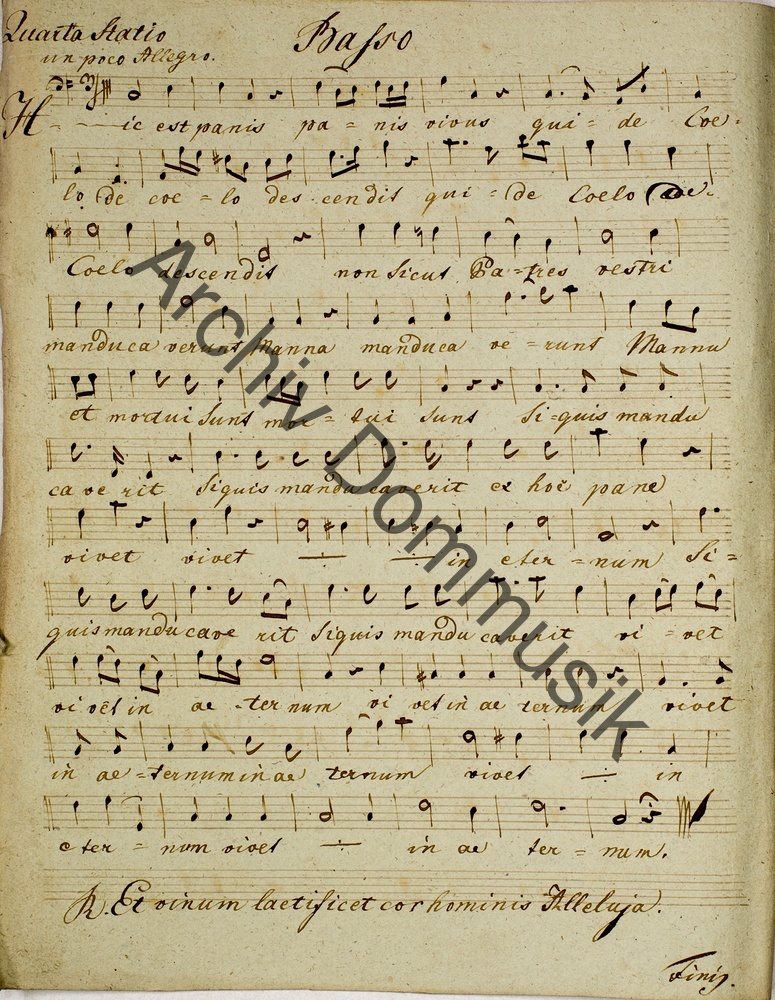 Quarta Statio
Basso
un poco Allegro.
Hic est panis pa = nis vivus qui = de Coe =
lo de coe = lo des cendit qui = de Coelo de
Coelo descendit non Sicut Pa = tres vestri
manduca verunt Manna manduca ve = runt Manna
et mortui Sunt mor = tui sunt Si = quis mandu
ca ve rit Siquis mandu caverit ex hoc pane
vivet vivet in eter = num Si =
quis mandu cave rit Siquis mandu caverit vi = vet
vi vet in ae = ter num vi vet in ae ternum vivet
in ae = ternum in ae ternum vivet in
eter = num vivet in ae ter = num.
R. Et vinum laetificet cor hominis Alleluja.
Finis.
Archiv Dommusik